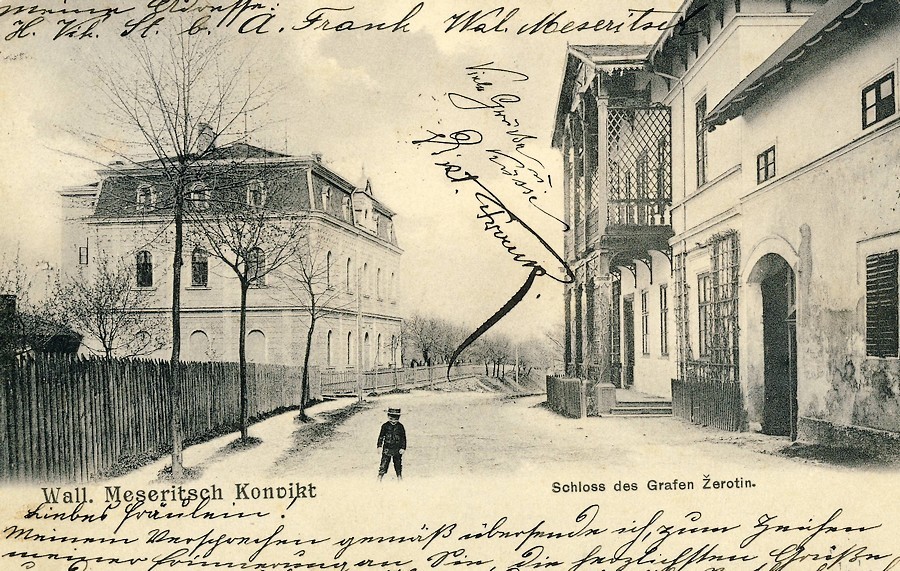 meine Adresse:
H. Vik. St. b. A. Frank Wal. Meseritsch
Viele Grüße u.
Küsse
Vikt. Frank.
Wall. Meseritsch Konvikt
Schloss des Grafen Žerotin.
Liebes Fräulein!
Meinem Versprechen gemäß übersende ich, zum Zeichen
meiner Erinnerung an Sie, die herzlichsten Grüße